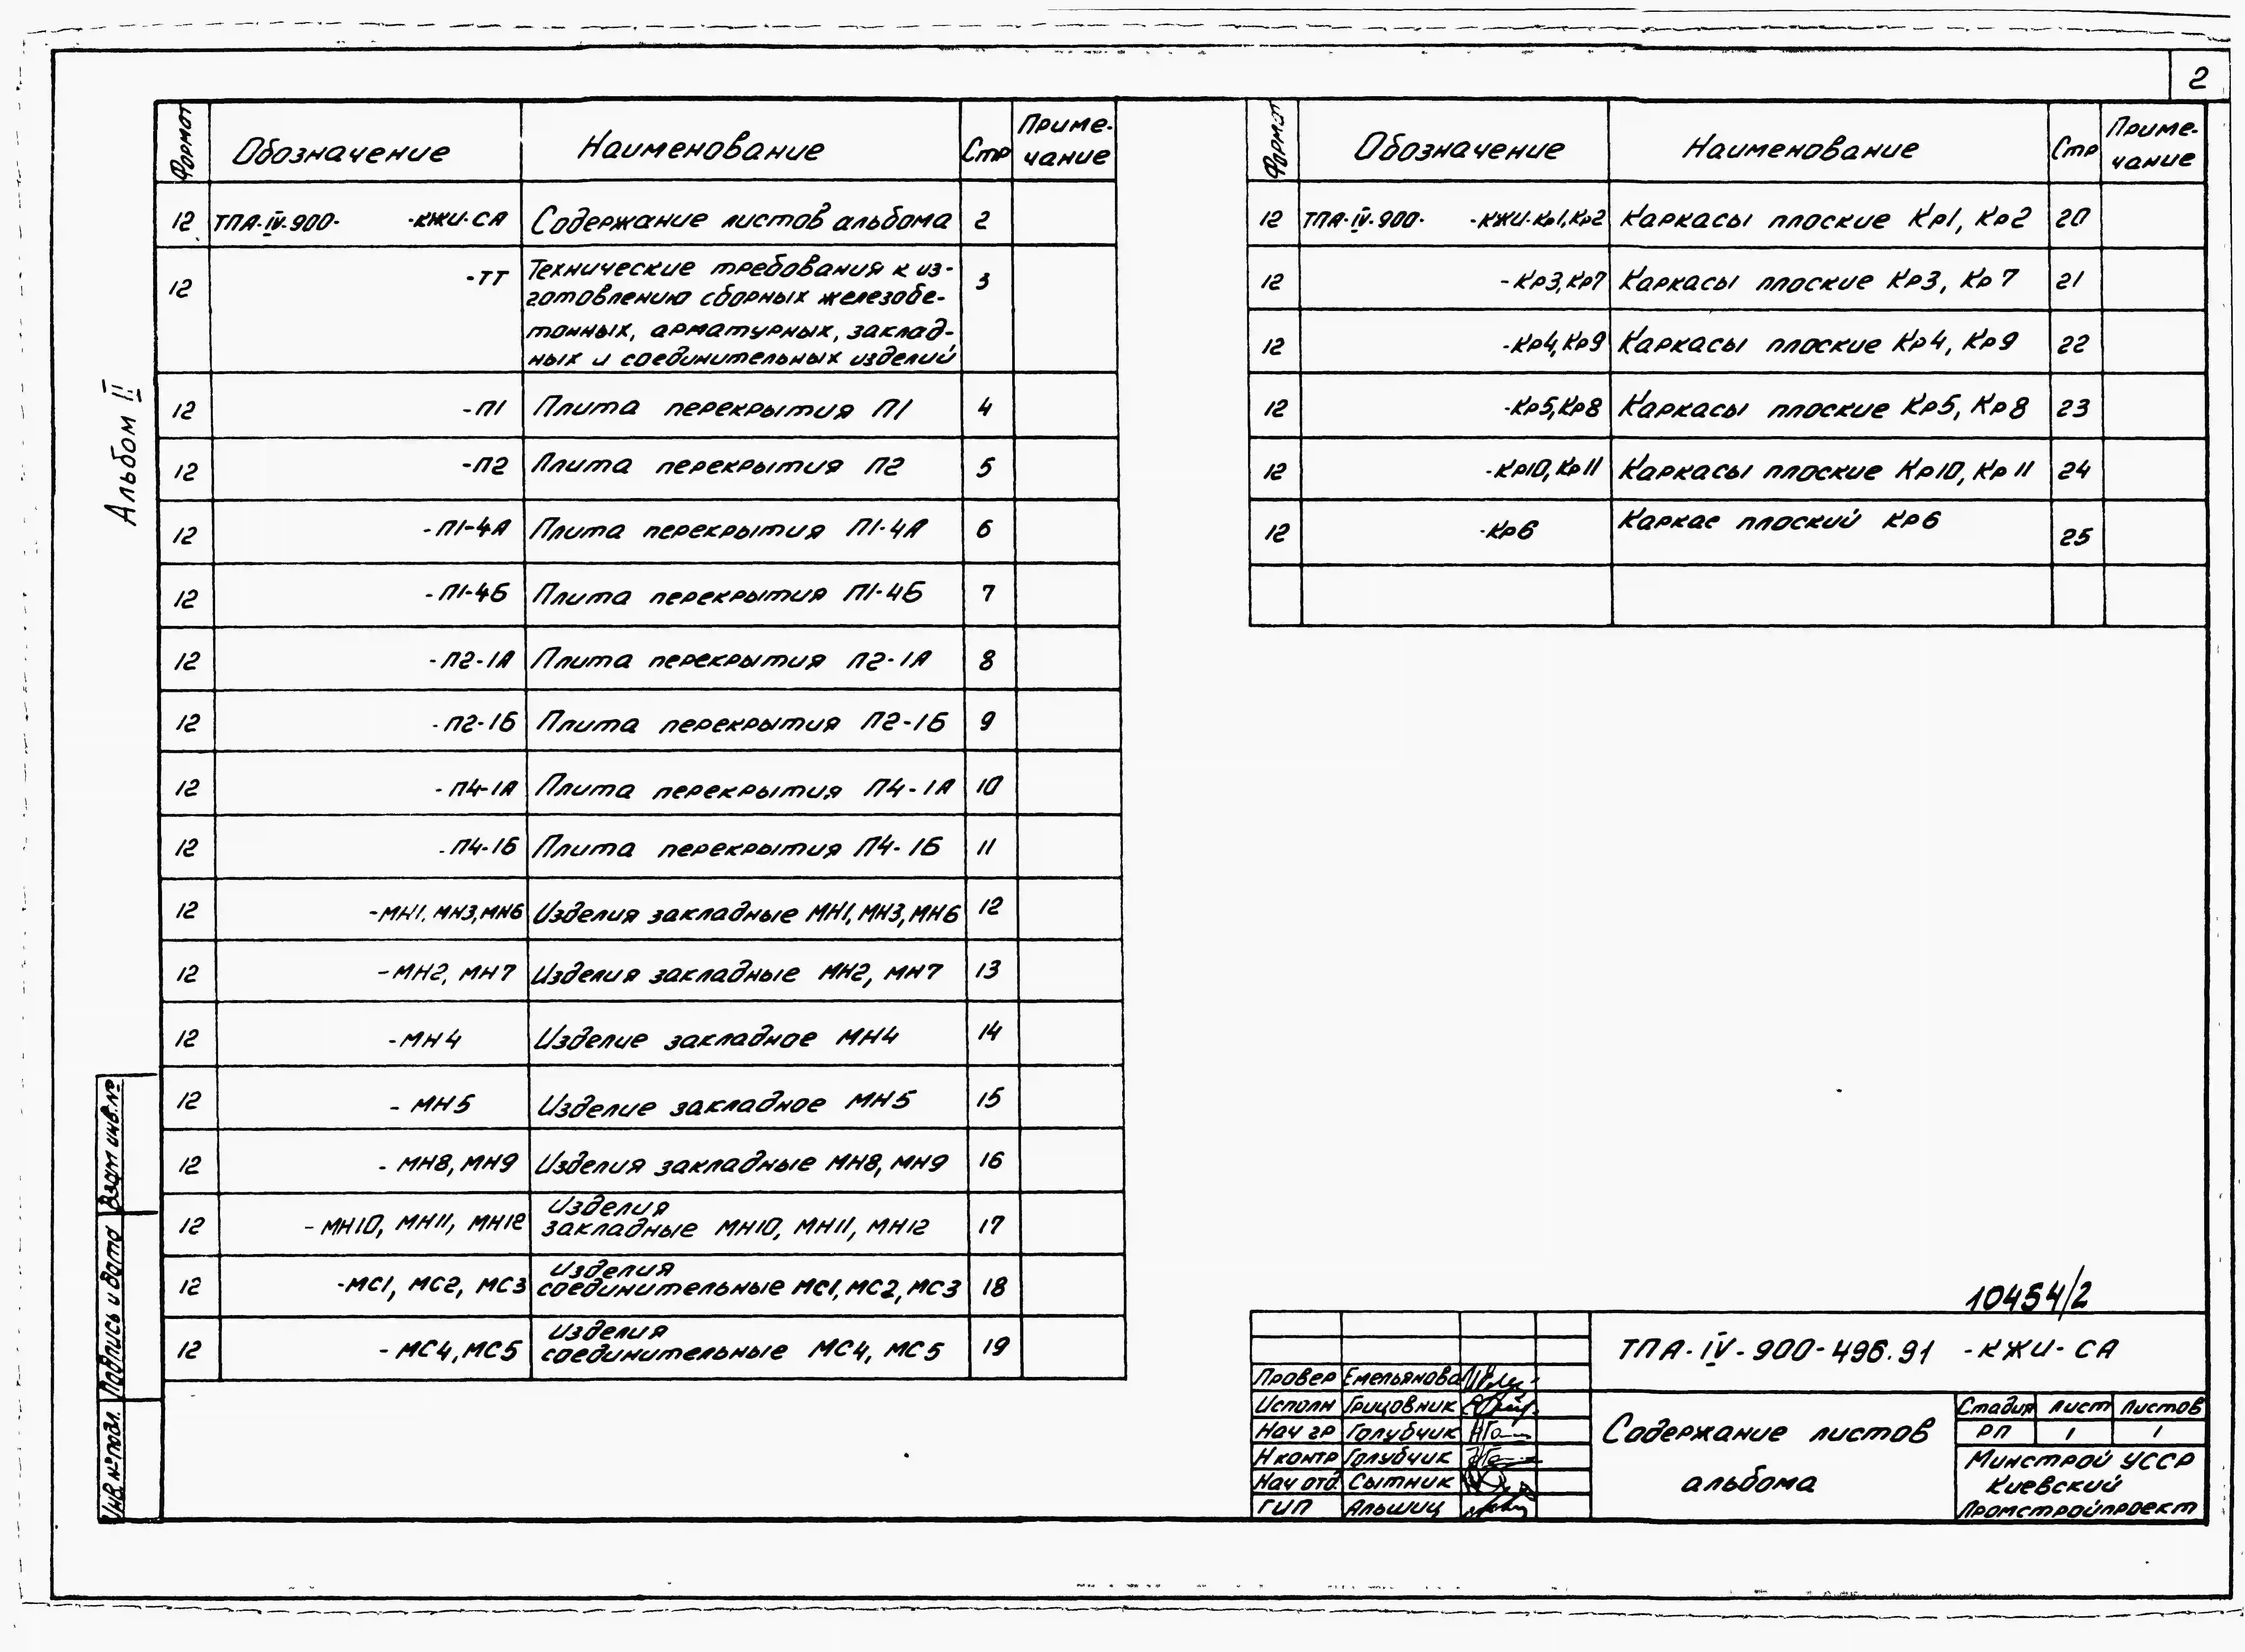 2
Альбом II
Формат Обозначение Наименование Стр Приме-
чание
12 ТПА-IV-900- -КЖИ-СА Содержание листов альбома 2
12 -ТТ Технические требования к из- 3
готовлению сборных железобе-
тонных, арматурных, заклад-
ных и соединительных изделий
12 -П1 Плита перекрытия П1 4
12 -П2 Плита перекрытия П2 5
12 -П1-4А Плита перекрытия П1-4А 6
12 -П1-4Б Плита перекрытия П1-4Б 7
12 -П2-1А Плита перекрытия П2-1А 8
12 -П2-1Б Плита перекрытия П2-1Б 9
12 -П4-1А Плита перекрытия П4-1А 10
12 -П4-1Б Плита перекрытия П4-1Б 11
12 -МН1, МН3, МН6 Изделия закладные МН1, МН3, МН6 12
12 -МН2, МН7 Изделия закладные МН2, МН7 13
12 -МН4 Изделие закладное МН4 14
12 -МН5 Изделие закладное МН5 15
12 -МН8, МН9 Изделия закладные МН8, МН9 16
Изделия
12 -МН10, МН11, МН12 закладные МН10, МН11, МН12 17
Изделия
12 -МС1, МС2, МС3 соединительные МС1, МС2, МС3 18
Изделия
12 -МС4, МС5 соединительные МС4, МС5 19
Формат Обозначение Наименование Стр Приме-
чание
12 ТПА-IV-900- -КЖИ-Кр1, Кр2 Каркасы плоские Кр1, Кр2 20
12 -Кр3, Кр7 Каркасы плоские Кр3, Кр7 21
12 -Кр4, Кр9 Каркасы плоские Кр4, Кр9 22
12 -Кр5, Кр8 Каркасы плоские Кр5, Кр8 23
12 -Кр10, Кр11 Каркасы плоские Кр10, Кр11 24
12 -Кр6 Каркас плоский Кр6 25
Взам инв.№
Подпись и дата
Инв.№ подл.
10454/2
ТПА-IV-900-496.91 -КЖИ-СА
Провер Емельянова
Исполн Грицовник
Нач гр Голубчик
Н контр Голубчик
Нач отд. Сытник
ГИП Альшиц
Содержание листов
альбома
Стадия Лист Листов
РП 1 1
Минстрой УССР
Киевский
Промстройпроект